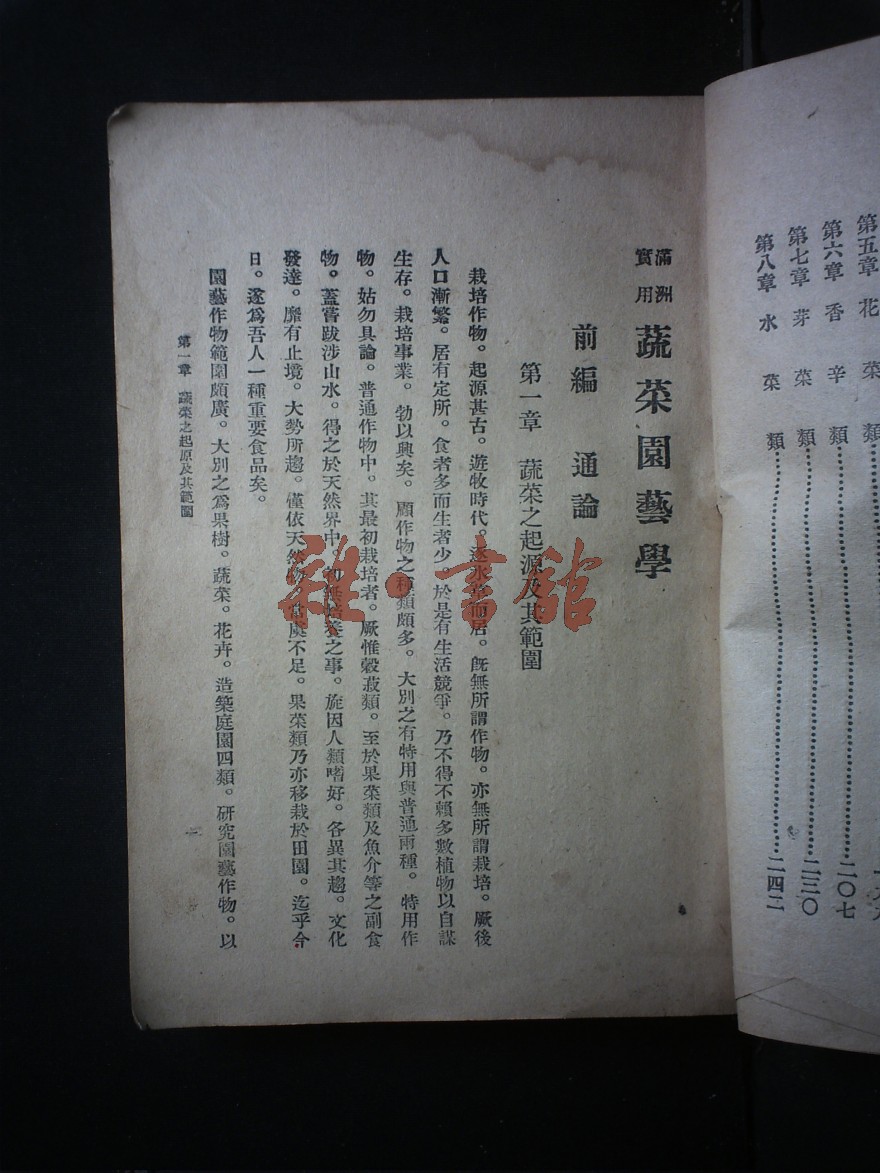 第五章 花菜類
第六章 香辛類……二〇七
第七章 芽菜類……二三〇
第八章 水菜類……二四二
滿洲實用 蔬菜園藝學
前編 通論
第一章 蔬菜之起源及其範圍
栽培作物。起源甚古。遊牧時代。逐水草而居。旣無所謂作物。亦無所謂栽培。厥後
人口漸繁。居有定所。食者多而生者少。於是有生活競爭。乃不得不賴多數植物以自謀
生存。栽培事業。勃以興矣。顧作物之種類頗多。大別之有特用與普通兩種。特用作
物。姑勿具論。普通作物中。其最初栽培者。厥惟穀菽類。至於果菜類及魚介等之副食
物。蓋嘗跋涉山水。得之於天然界中。初無培養之事。旋因人類嗜好。各異其趨。文化
發達。靡有止境。大勢所趨。僅依天然物。常虞不足。果菜類乃亦移栽於田園。迄乎今
日。遂爲吾人一種重要食品矣。
園藝作物範圍頗廣。大別之爲果樹。蔬菜。花卉。造築庭園四類。硏究園藝作物。以
第一章 蔬菜之起原及其範圍
雜·書館